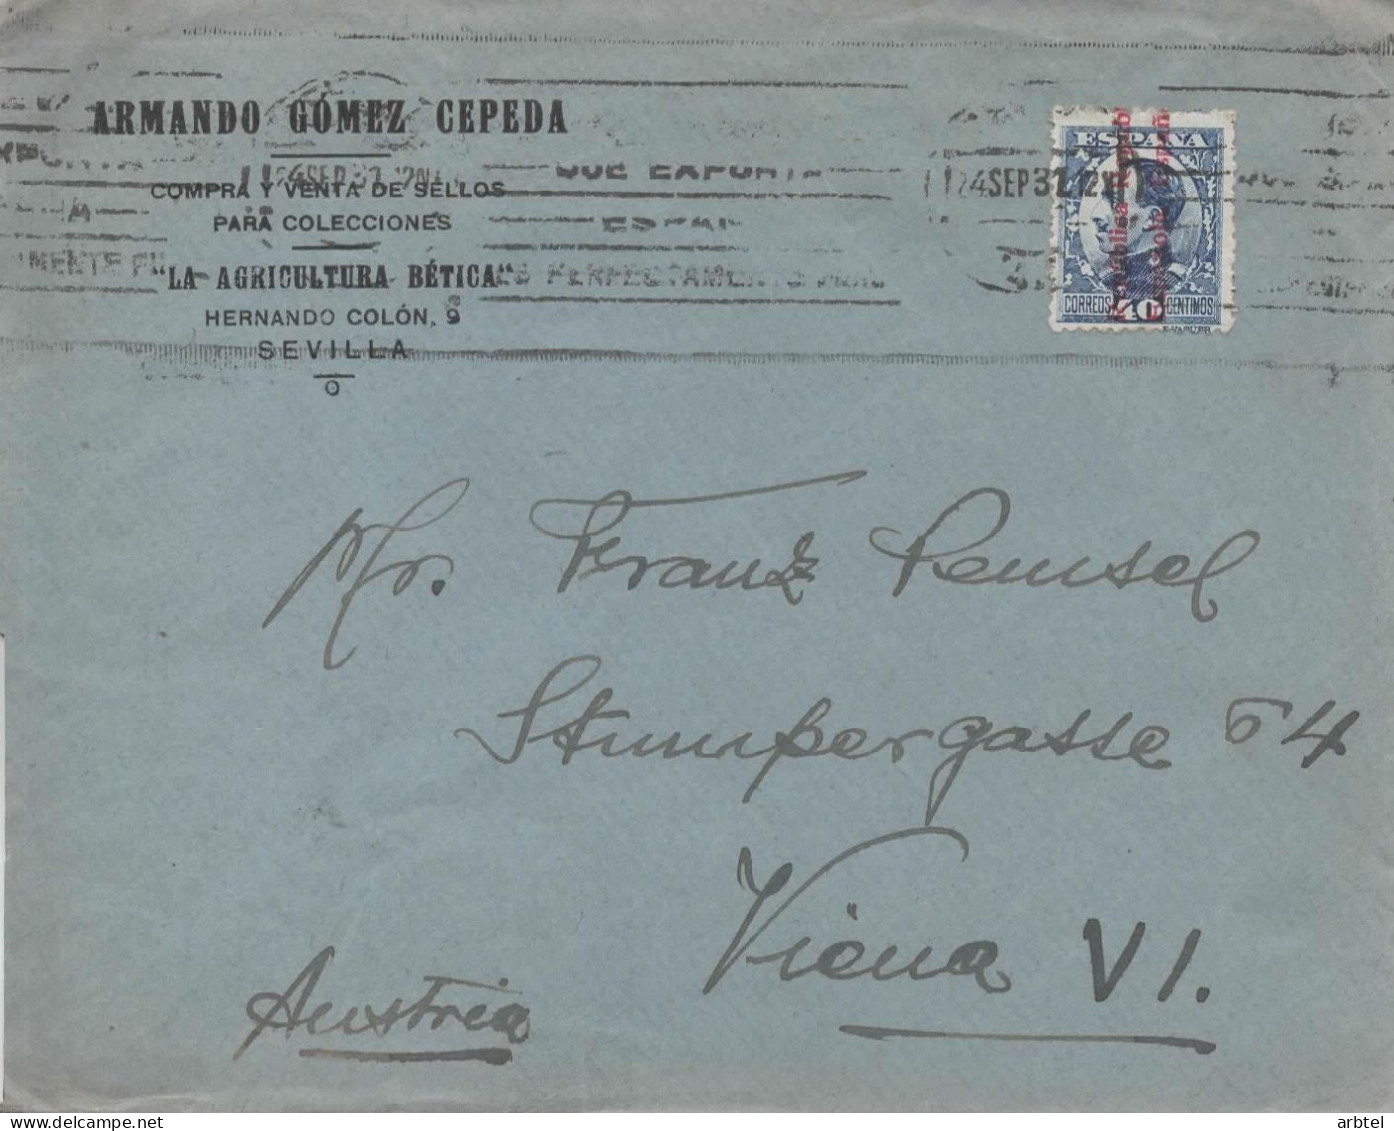 ARMANDO GÓMEZ CEPEDA
COMPRA Y VENTA DE SELLOS
PARA COLECCIONES
"LA AGRICULTURA BÉTICA"
HERNANDO COLÓN, 9
SEVILLA
QUE EXPORTA
24 SEP 31. 12
ESPAÑA
República
Española
CORREOS 40 CENTIMOS
Mr. Franz Pemsel
Stumpergasse 54
Viena VI.
Austria
arbtel